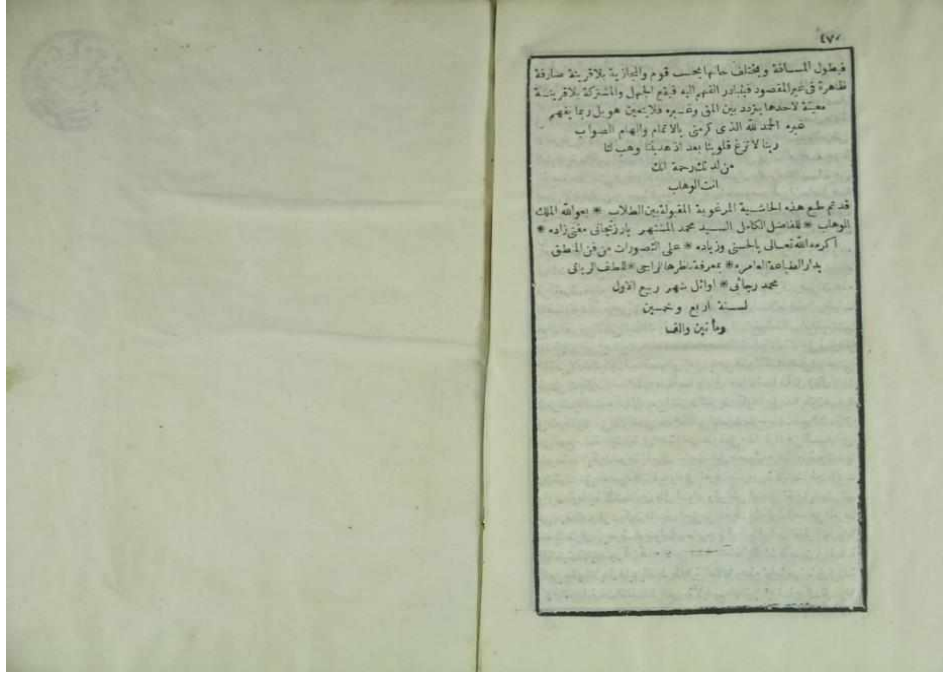 ٤٧٠
فيطول المسافة ويختلف حالها بحسب قوم والمجازية بلا قرينة صارفة
ظاهرة فى غير المقصود فيتبادر الفهم اليه فيقع الجهل والمشتركة بلا قرينة
معينة لاحدها يتردد بين المق وغيره فلا يتعين هو بل ربما يفهم
غيره الحمد لله الذى كرمنى بالاتمام والهام الصواب
ربنا لا تزغ قلوبنا بعد اذ هديتنا وهب لنا
من لدنك رحمة انك
انت الوهاب
قد تم طبع هذه الحاشية المرغوبة المقبولة بين الطلاب * بعو الله الملك
الوهاب * للفاضل الكامل السيد محمد المشتهر بارزنجانى مفتى زاده *
اكرمه الله تعالى بالحسنى وزياده * على التصورات من فن المنطق
بدار الطباعة العامره * بمعرفة ناظرها الراجى * للطف الربانى
محمد رجائى * اوائل شهر ربيع الاول
لسنة اربع وخمسين
ومأتين والف